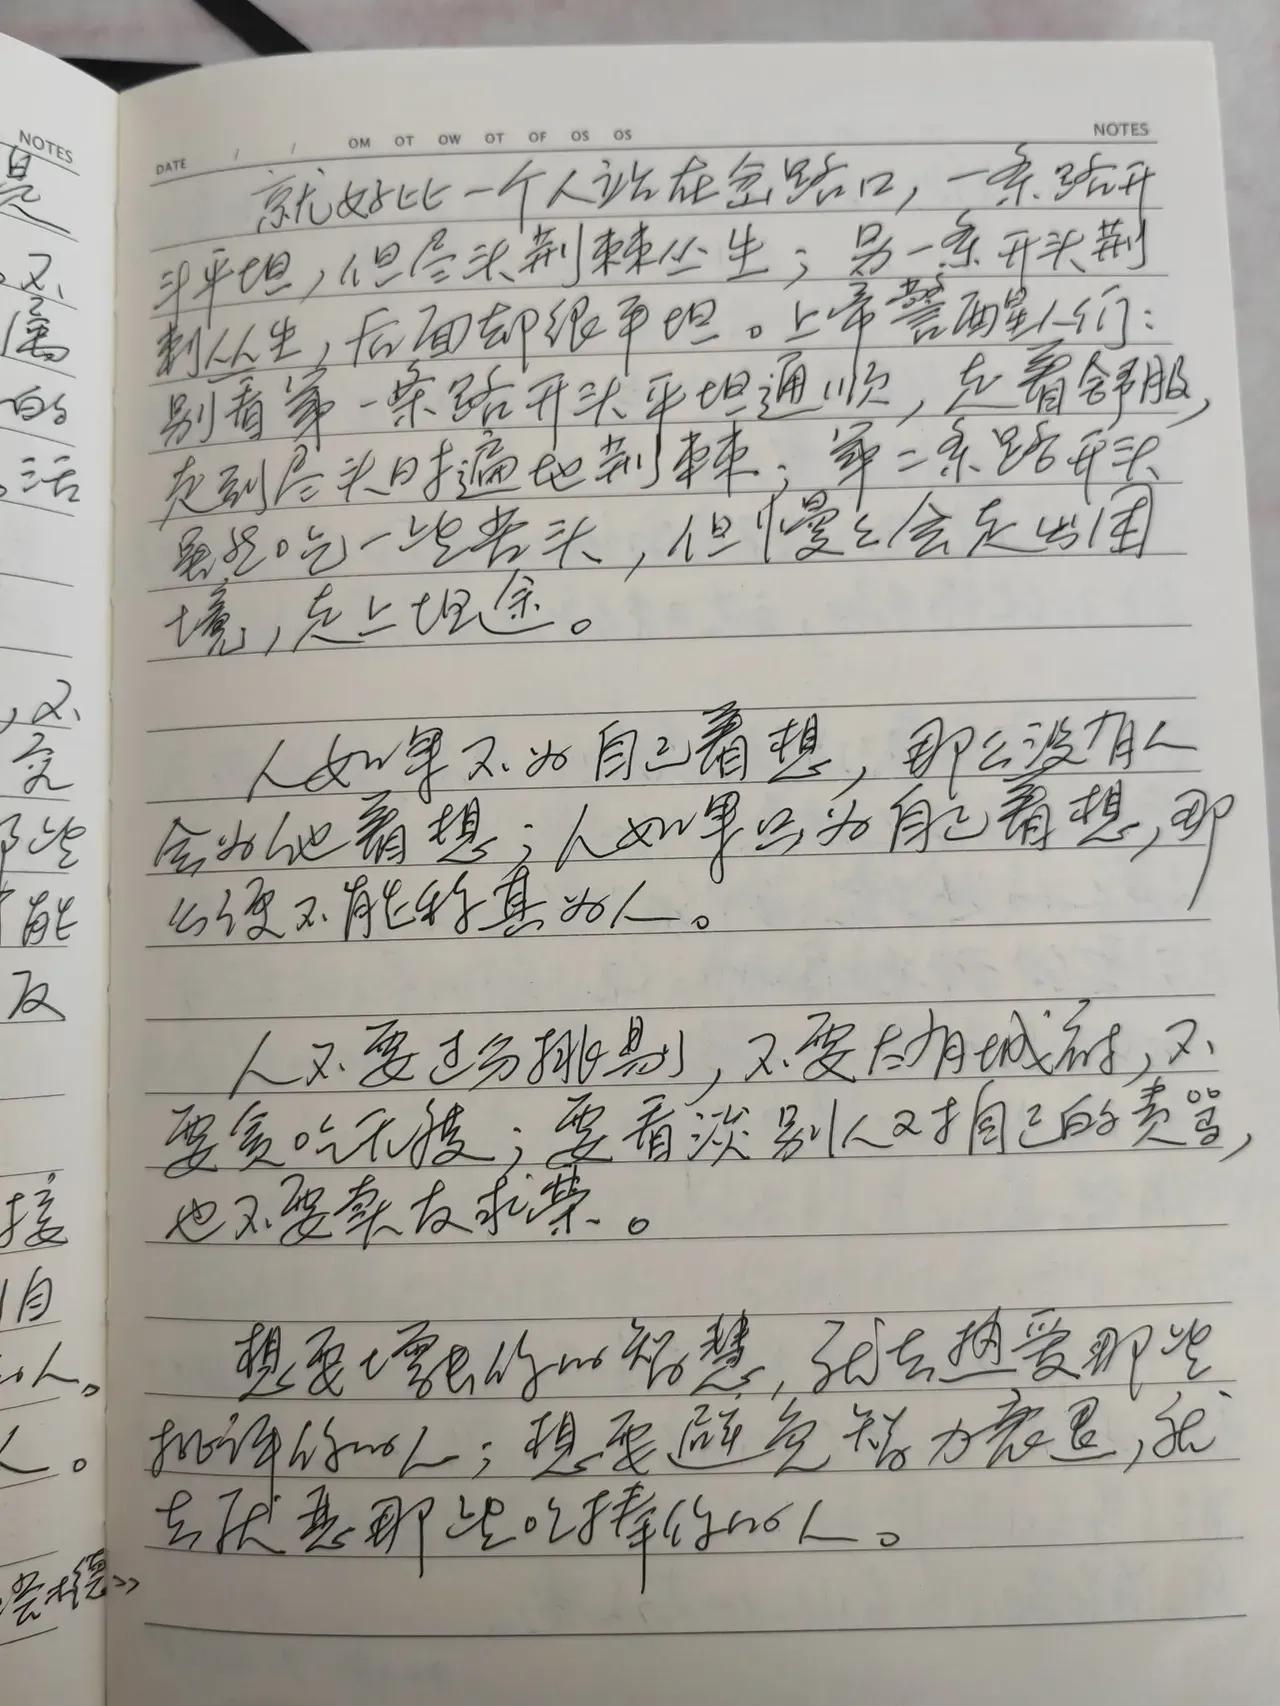 NOTES
是
不
属
的
活
，不
究
那些
能
反
接
自
人。
人。
DATE / / OM OT OW OT OF OS OS NOTES
就好比一个人站在岔路口，一条路开
头平坦，但尽头荆棘丛生；另一条开头荆
刺丛生，后面却很平坦。上帝警醒人们：
别看第一条路开头平坦通顺，走着舒服，
走到尽头时遍地荆棘；第二条路开头
虽然吃一些苦头，但慢慢会走出困
境，走上坦途。
人如果不为自己着想，那么没有人
会为他着想；人如果只为自己着想，那
么便不能称其为人。
人不要过分挑剔，不要太有城府，不
要贪吃无度；要看淡别人对自己的责骂，
也不要卖友求荣。
想要增长你的智慧，就去热爱那些
批评你的人；想要避免智力衰退，就
去厌恶那些吹捧你的人。